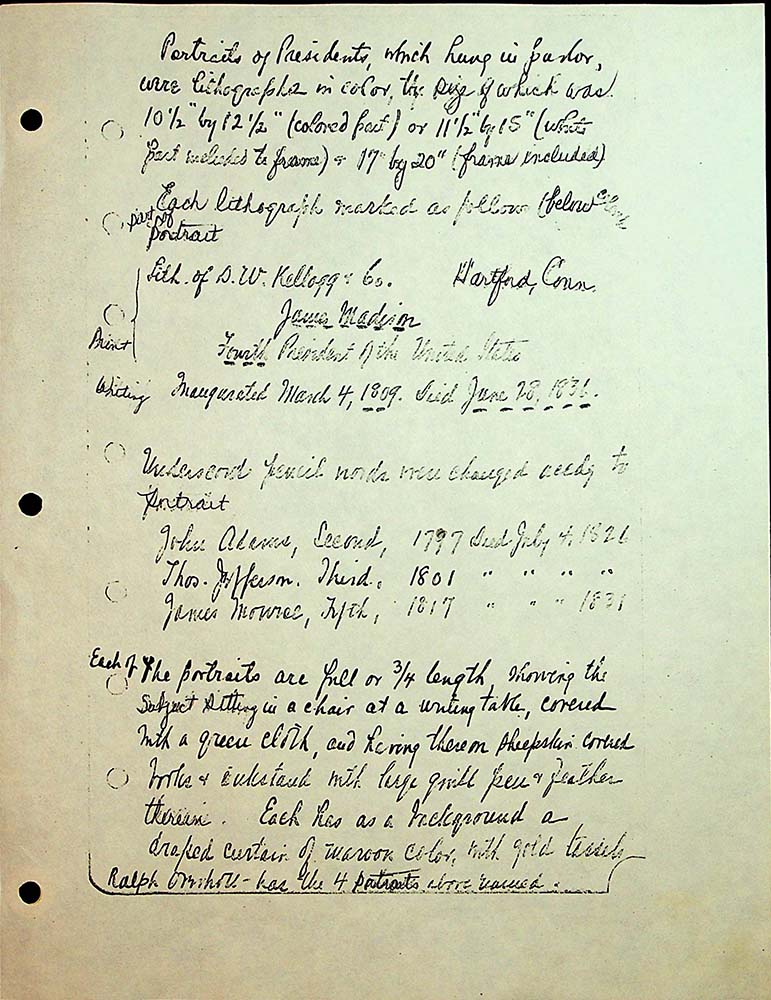 Portraits of Presidents, which hung in parlor,
were lithographs in color, the size of which was
10 1/2" by 12 1/2" (colored part) or 11 1/2" by 15" (white
part included to frame) & 17" by 20" (frame included)
Each lithograph marked as follows (below
part of
portrait
Lith. of D. W. Kellogg & Co. Hartford, Conn.
James Madison
Print
Fourth President of the United States
Writing Inaugurated March 4, 1809. Died June 28, 1836.
Underscored pencil words were changed accdg to
portrait
John Adams, Second, 1797 Died July 4, 1826
Thos. Jefferson, Third, 1801 " " " "
James Monroe, Fifth, 1817 " " " 1831
Each of the portraits are full or 3/4 length, showing the
subject sitting in a chair at a writing table, covered
with a green cloth, and having thereon sheepskin covered
books & inkstand with large quill pen & feather
therein. Each has as a background a
draped curtain of maroon color, with gold tassels
Ralph - has the 4 portraits above named.